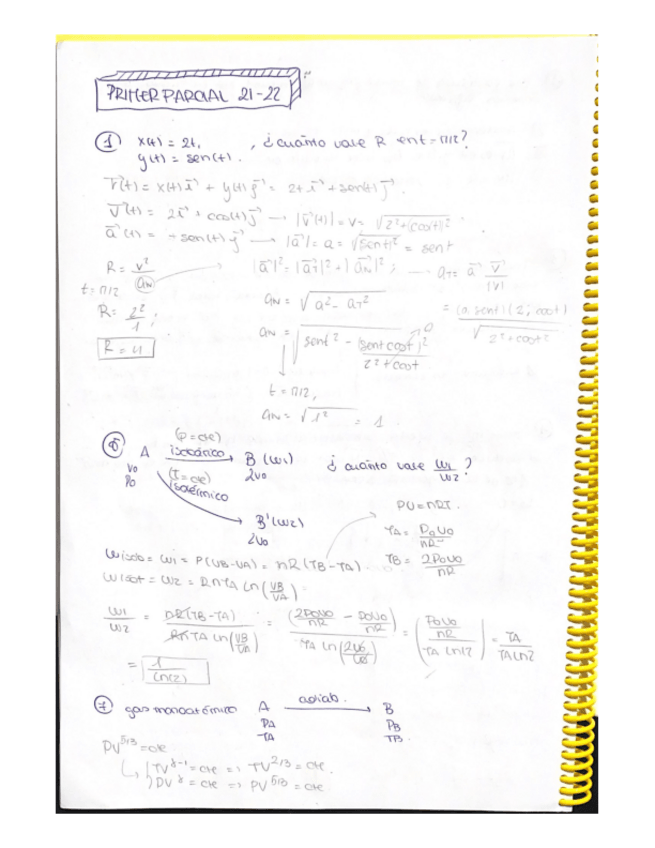 PRIMER PARCIAL 21-22
① x(t) = 2t, , ¿cuánto vale R en t=π/2?
y(t) = sen(t).
r⃗(t) = x(t) i⃗ + y(t) j⃗ = 2t i⃗ + sen(t) j⃗.
v⃗(t) = 2 i⃗ + cos(t) j⃗ → |v⃗(t)| = v = √(2²+(cost)²)
a⃗(t) = -sen(t) j⃗ → |a⃗| = a = √(sent)² = sent
R = v²/aN
|a⃗|² = |a⃗T|² + |a⃗N|² ; → aT = a⃗ v⃗/|v|
t = π/2
aN = √(a² - aT²)
= (0, sent)(2, cost)/√(2²+cost²)
R = 2²/1 ;
aN = √(sent² - (sent cost)²/(2²+cost)) 0
R = 4
t = π/2,
aN = √1² = 1
⑥ A (P=cte) isobárico → B (W1) ¿cuánto vale W1/W2?
V0 2V0
P0 (T=cte) isotérmico
B' (W2)
2V0
PV=nRT.
TA = P0V0/nR
Wisob = W1 = P(VB-VA) = nR(TB-TA)
TB = 2P0V0/nR
Wisot = W2 = RnTA Ln(VB/VA)
W1/W2 = nR(TB-TA)/(RnTA Ln(VB/VA)) = (2P0V0/nR - P0V0/nR)/(TA Ln(2V0/V0)) = (P0V0/nR)/(TA Ln2) = TA/(TA Ln2)
= 1/Ln(2)
⑦ gas monoatómico A adiab. → B
PA PB
TA TB.
PV^5/3 = cte
TV^γ-1 = cte => TV^2/3 = cte.
PV^γ = cte => PV^5/3 = cte